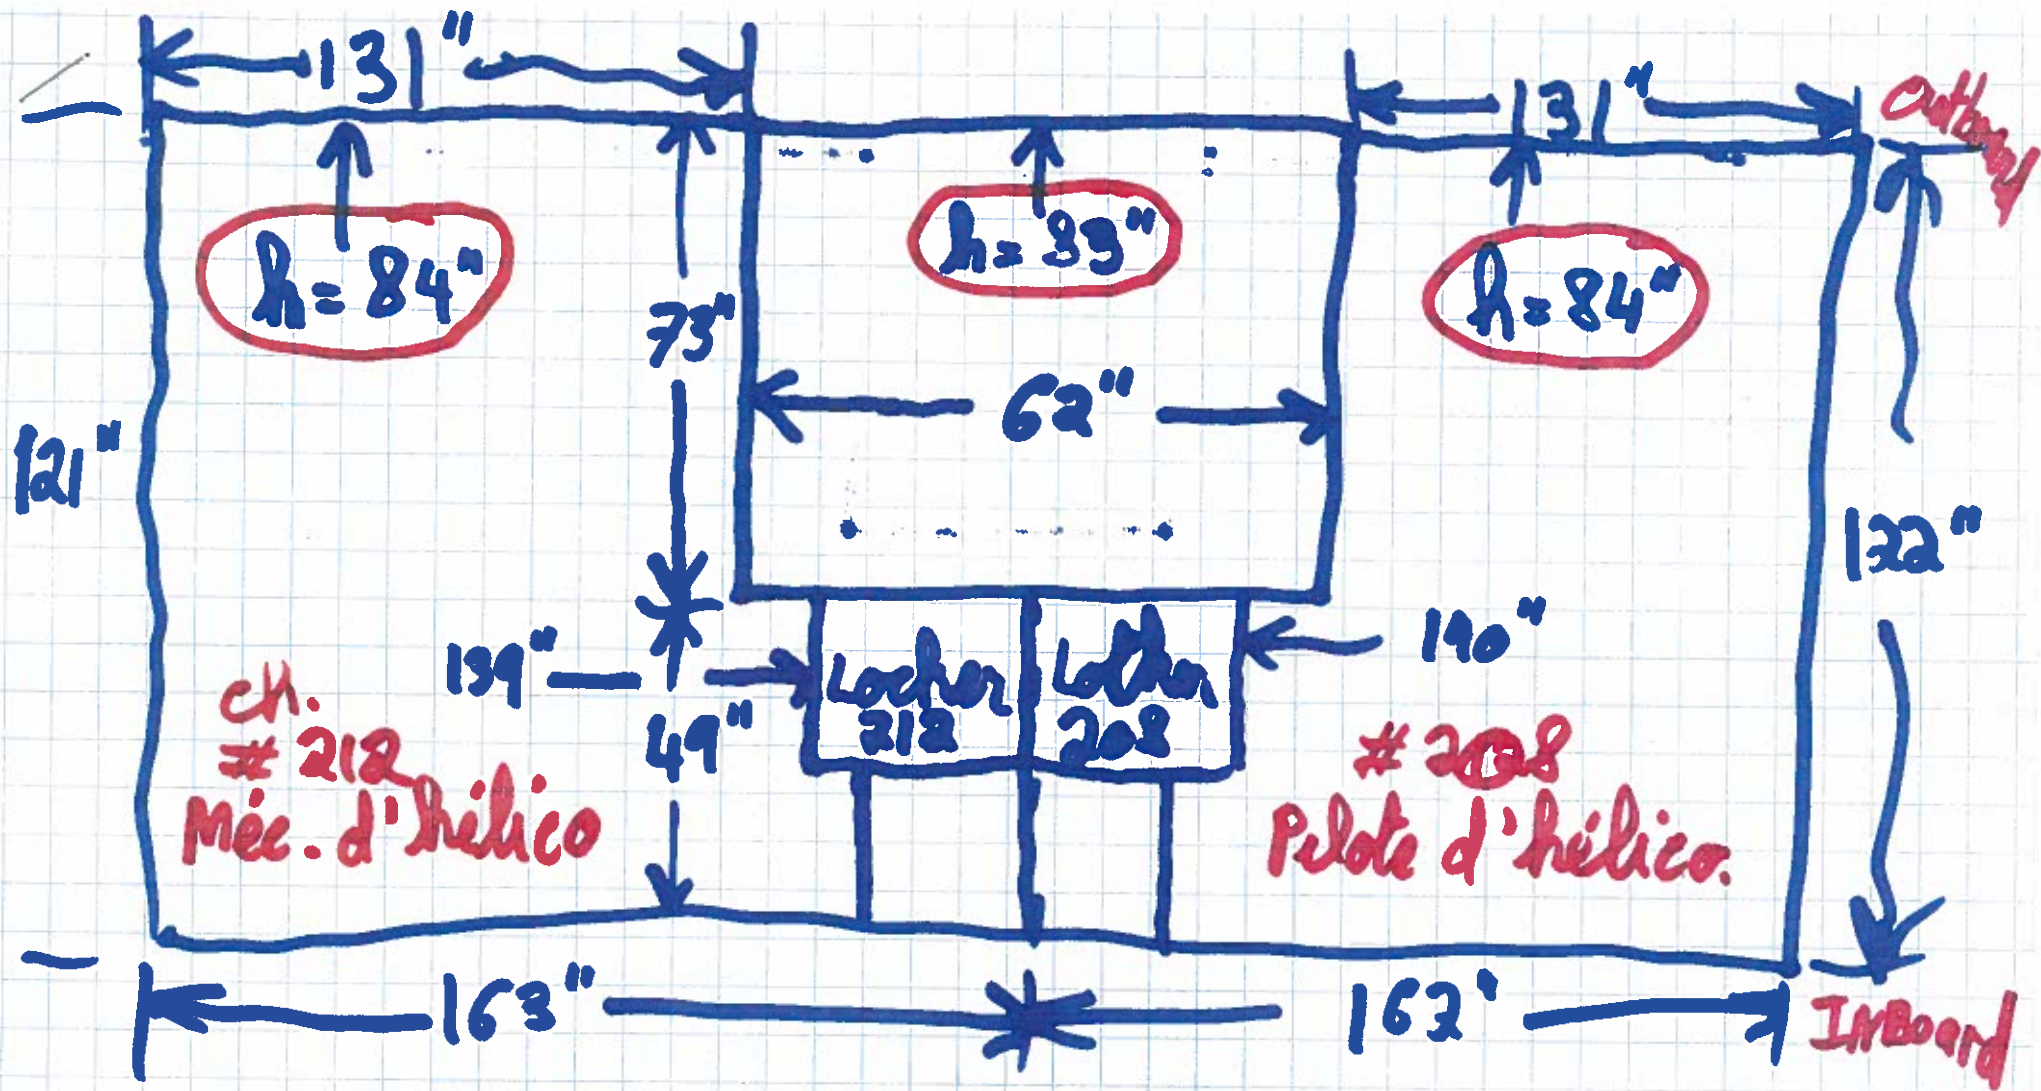 131"
131"
Outboard
h = 84"
h = 33"
h = 84"
73"
62"
121"
122"
139"
Locker
212
Locker
208
140"
ch.
# 212
Méc. d'hélico
49"
# 208
Pilote d'hélico.
163"
162"
InBoard